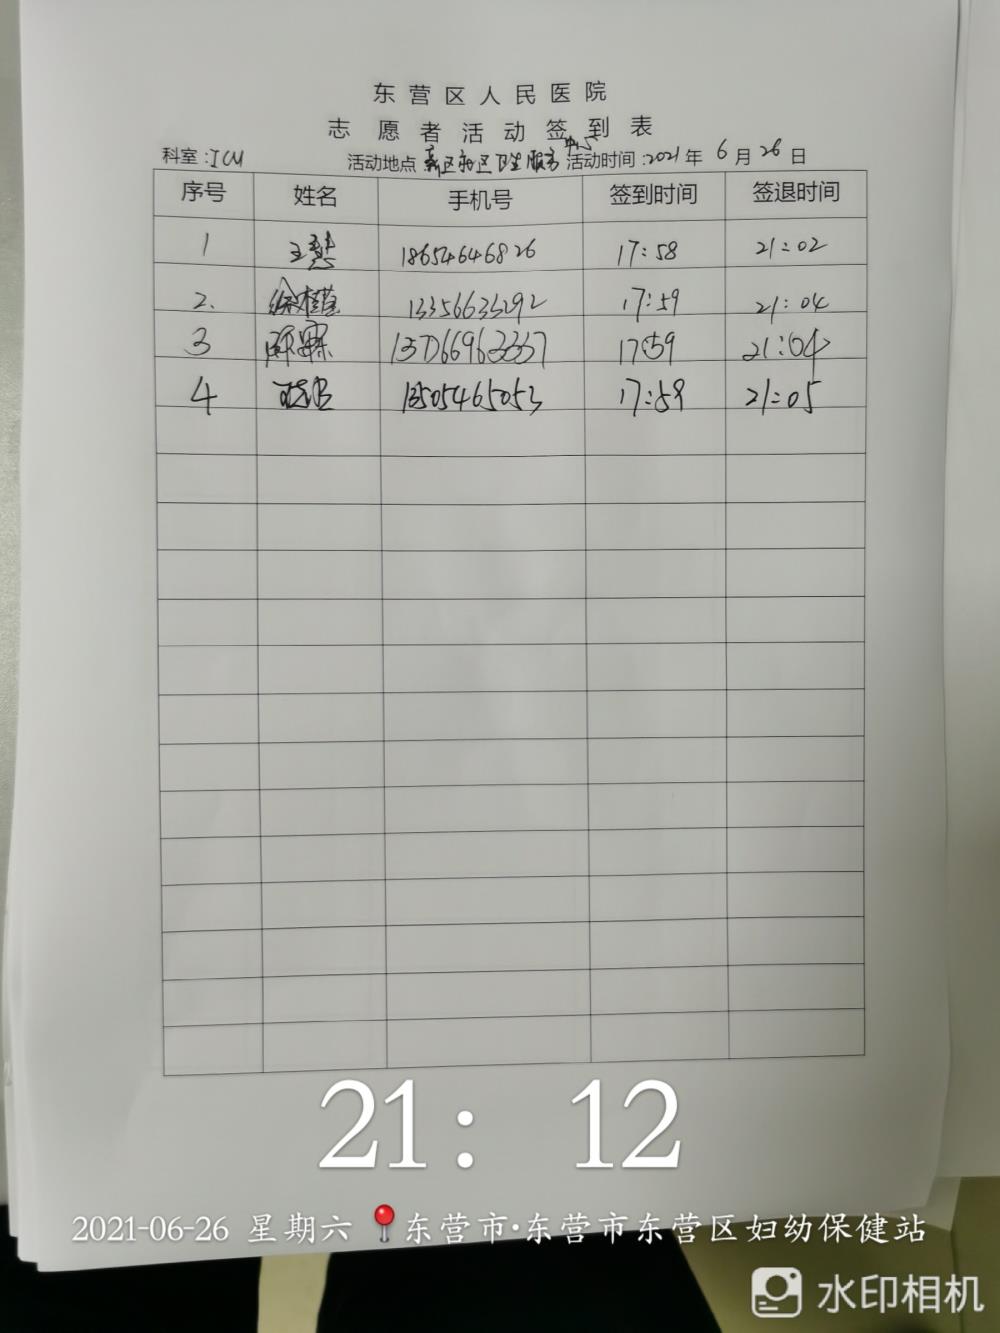 东营区人民医院
志愿者活动签到表
科室:ICU 活动地点 社区卫生服务中心 活动时间:2021年6月26日
序号 姓名 手机号 签到时间 签退时间
1 王慧 18654646826 17:58 21:02
2. 13356633292 17:59 21:04
3 17:59 21:04
4 13505465053 17:59 21:05
21:12
2021-06-26 星期六 东营市·东营市东营区妇幼保健站
水印相机